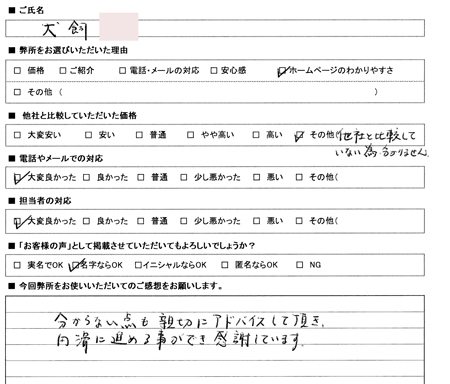 ■ ご氏名
犬飼
■ 弊所をお選びいただいた理由
□ 価格 □ ご紹介 □ 電話・メールの対応 □ 安心感 ☑ ホームページのわかりやすさ
□ その他 ( )
■ 他社と比較していただいた価格
□ 大変安い □ 安い □ 普通 □ やや高い □ 高い ☑ その他( 他社と比較して
いない為、分かりません。
■ 電話やメールでの対応
☑ 大変良かった □ 良かった □ 普通 □ 少し悪かった □ 悪い □ その他(
■ 担当者の対応
☑ 大変良かった □ 良かった □ 普通 □ 少し悪かった □ 悪い □ その他(
■ 「お客様の声」として掲載させていただいてもよろしいでしょうか？
□ 実名でOK ☑ 名字ならOK □ イニシャルならOK □ 匿名ならOK □ NG
■ 今回弊所をお使いいただいてのご感想をお願いします。
分からない点も親切にアドバイスして頂き、
円滑に進める事ができ感謝しています。